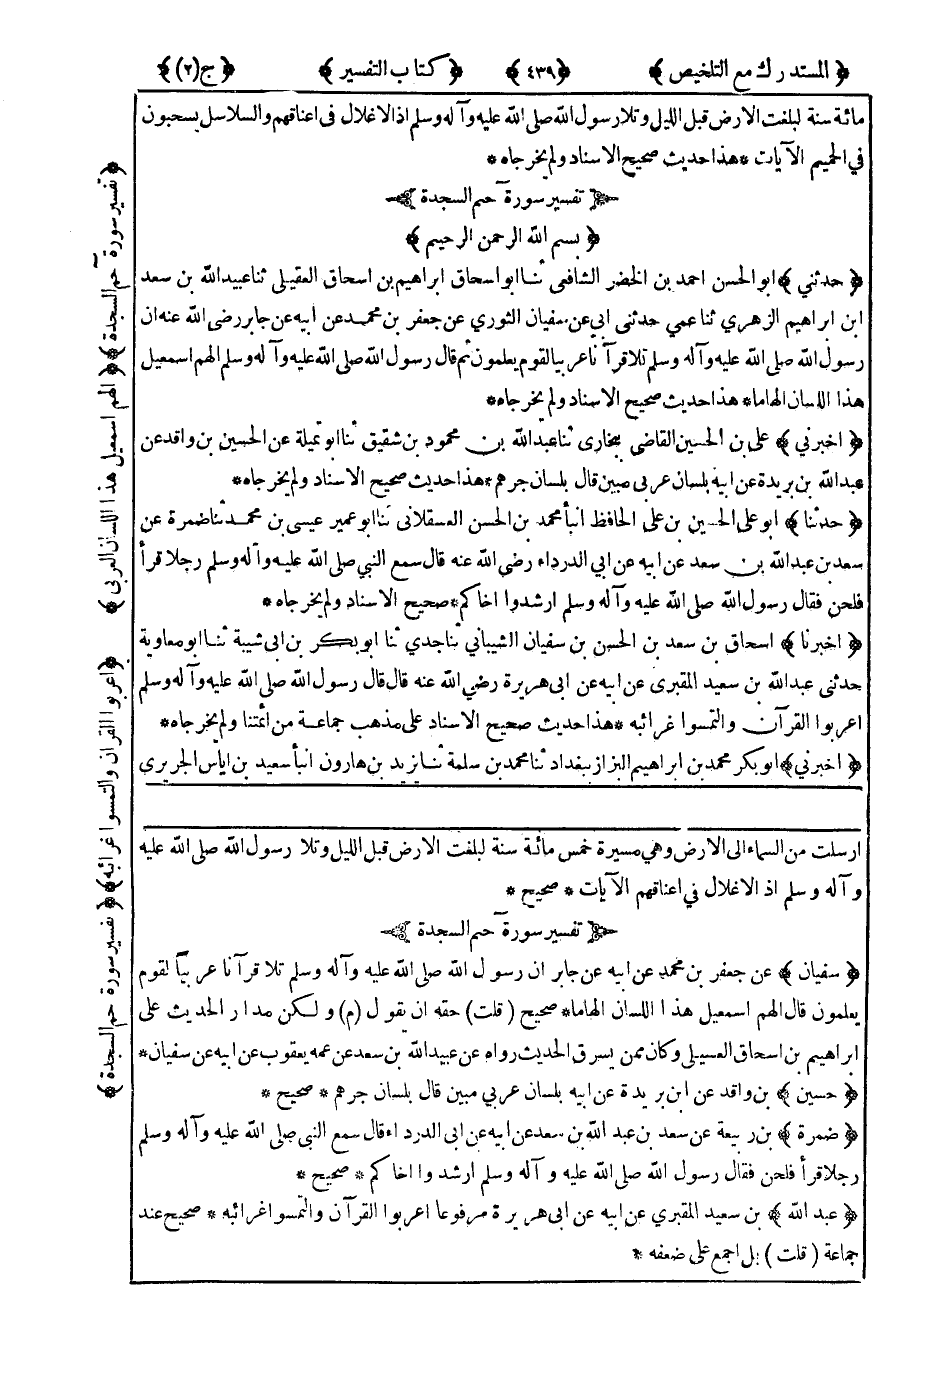 ﴿ المستدرك مع التلخيص ﴾ ﴿ ٤٣٩ ﴾ ﴿ كتاب التفسير ﴾ ﴿ ج(٢) ﴾
مائة سنة لبلغت الارض قبل الليل وتلا رسول الله صلى الله عليه وآله وسلم اذ الاغلال فى اعناقهم والسلاسل يسحبون
في الحميم الآيات * هذا حديث صحيح الاسناد ولم يخرجاه *
تفسير سورة حم السجدة
﴿ بسم الله الرحمن الرحيم ﴾
﴿ حدثني ﴾ ابو الحسن احمد بن الخضر الشافعى ثنا ابو اسحاق ابراهيم بن اسحاق العقيلى ثنا عبيد الله بن سعد
ابن ابراهيم الزهري ثنا عمي حدثنى ابي عن سفيان الثوري عن جعفر بن محمد عن ابيه عن جابر رضى الله عنه ان
رسول الله صلى الله عليه وآله وسلم تلا قرآنا عربيا لقوم يعلمون ثم قال رسول الله صلى الله عليه وآله وسلم الهم اسمعيل
هذا اللسان الهاما * هذا حديث صحيح الاسناد ولم يخرجاه *
﴿ اخبرني ﴾ على بن الحسين القاضى ببخارى ثنا عبد الله بن محمود بن شقيق ثنا ابو تميلة عن الحسين بن واقد عن
عبد الله بن بريدة عن ابيه بلسان عربى مبين قال بلسان جرهم * هذا حديث صحيح الاسناد ولم يخرجاه *
﴿ حدثنا ﴾ ابو على الحسين بن على الحافظ انبأ محمد بن الحسن العسقلانى ثنا ابو عمير عيسى بن محمد ثنا ضمرة عن
سعد بن عبد الله بن سعد عن ابيه عن ابي الدرداء رضى الله عنه قال سمع النبي صلى الله عليه وآله وسلم رجلا قرأ
فلحن فقال رسول الله صلى الله عليه وآله وسلم ارشدوا اخاكم * صحيح الاسناد ولم يخرجاه *
﴿ اخبرنا ﴾ اسحاق بن سعد بن الحسن بن سفيان الشيباني ثنا جدي ثنا ابو بكر بن ابى شيبة ثنا ابو معاوية
حدثنى عبد الله بن سعيد المقبرى عن ابيه عن ابى هريرة رضي الله عنه قال قال رسول الله صلى الله عليه وآله وسلم
اعربوا القرآن والتمسوا غرائبه * هذا حديث صحيح الاسناد على مذهب جماعة من ائمتنا ولم يخرجاه *
﴿ اخبرني ﴾ ابو بكر محمد بن ابراهيم البزاز ببغداد ثنا محمد بن سلمة ثنا يزيد بن هارون انبأ سعيد بن اياس الجريرى
ارسلت من السماء الى الارض وهي مسيرة خمس مائة سنة لبلغت الارض قبل الليل وتلا رسول الله صلى الله عليه
وآله وسلم اذ الاغلال في اعناقهم الآيات * صحيح *
تفسير سورة حم السجدة
﴿ سفيان ﴾ عن جعفر بن محمد عن ابيه عن جابر ان رسول الله صلى الله عليه وآله وسلم تلا قرآنا عربياً لقوم
يعلمون قال الهم اسمعيل هذا اللسان الهاما * صحيح ( قلت ) حقه ان يقول (م) ولكن مدار الحديث على
ابراهيم بن اسحاق الغسيلى وكان ممن يسرق الحديث رواه عن عبيد الله بن سعد عن عمه يعقوب عن ابيه عن سفيان *
﴿ حسين ﴾ بن واقد عن ابن بريدة عن ابيه بلسان عربي مبين قال بلسان جرهم * صحيح *
﴿ ضمرة ﴾ بن ربيعة عن سعد بن عبد الله بن سعد عن ابيه عن ابى الدرداء قال سمع النبى صلى الله عليه وآله وسلم
رجلا قرأ فلحن فقال رسول الله صلى الله عليه وآله وسلم ارشدوا اخاكم * صحيح *
﴿ عبد الله ﴾ بن سعيد المقبري عن ابيه عن ابى هريرة مرفوعا اعربوا القرآن والتمسوا غرائبه * صحيح عند
جماعة ( قلت ) بل اجمع على ضعفه *
﴿ تفسير سورة حم السجدة ﴾ ﴿ الهم اسمعيل هذا اللسان العربى ﴾ ﴿ اعربوا القرآن والتمسوا غرائبه ﴾ ﴿ تفسير سورة حم السجدة ﴾